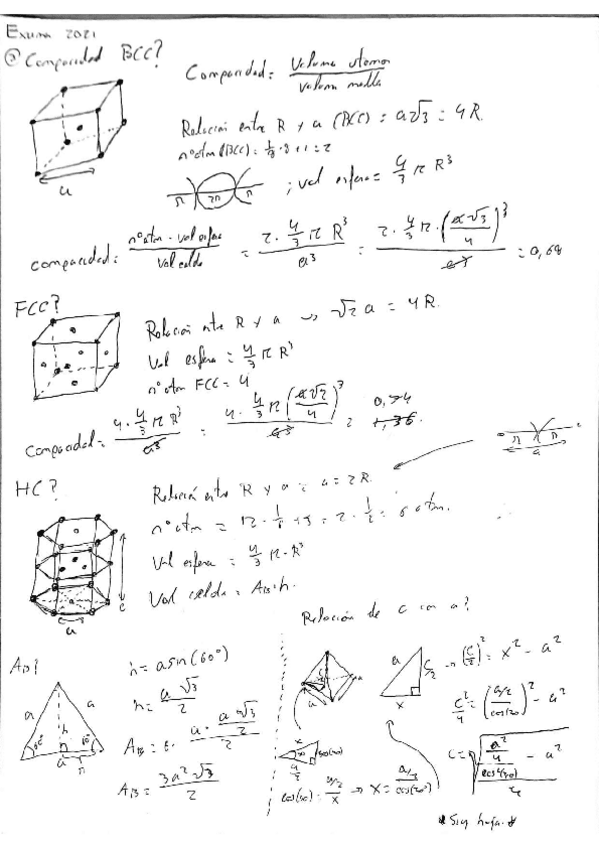 Examen 2021
② Compacidad BCC?
Compacidad = Volumen átomos / volumen malla
Relación entre R y a (BCC) = a√3 = 4R.
nºatm (BCC) = 1/8 · 8 + 1 = 2
; vol esfera = 4/3 π R³
a
compacidad = nºatm · vol esfera / Vol celda = 2 · 4/3 π R³ / a³ = 2 · 4/3 π · (a√3/4)³ / a³ = 0,68
FCC?
Relación entre R y a → √2 a = 4R.
Vol esfera = 4/3 π R³
nºatm FCC = 4
Compacidad = 4 · 4/3 π R³ / a³ = 4 · 4/3 π (a√2/4)³ / a³ = 0,74
HC?
Relación entre R y a = a = 2R.
nºatm = 12 · 1/6 + 3 + 2 · 1/2 = 6 atm.
Vol esfera = 4/3 π · R³
Vol celda = AB · h.
a
c
Relación de c con a?
AB?
h = a sin(60º)
h = a √3 / 2
AB = 6 · a · a√3/2 / 2
AB = 3a² √3 / 2
a c/2 x → (c/2)² = x² - a²
c²/4 = (a/2 / cos(30))² - a²
cos(30) = a/2 / x → x = a/2 / cos(30º)
* Sig hoja. *